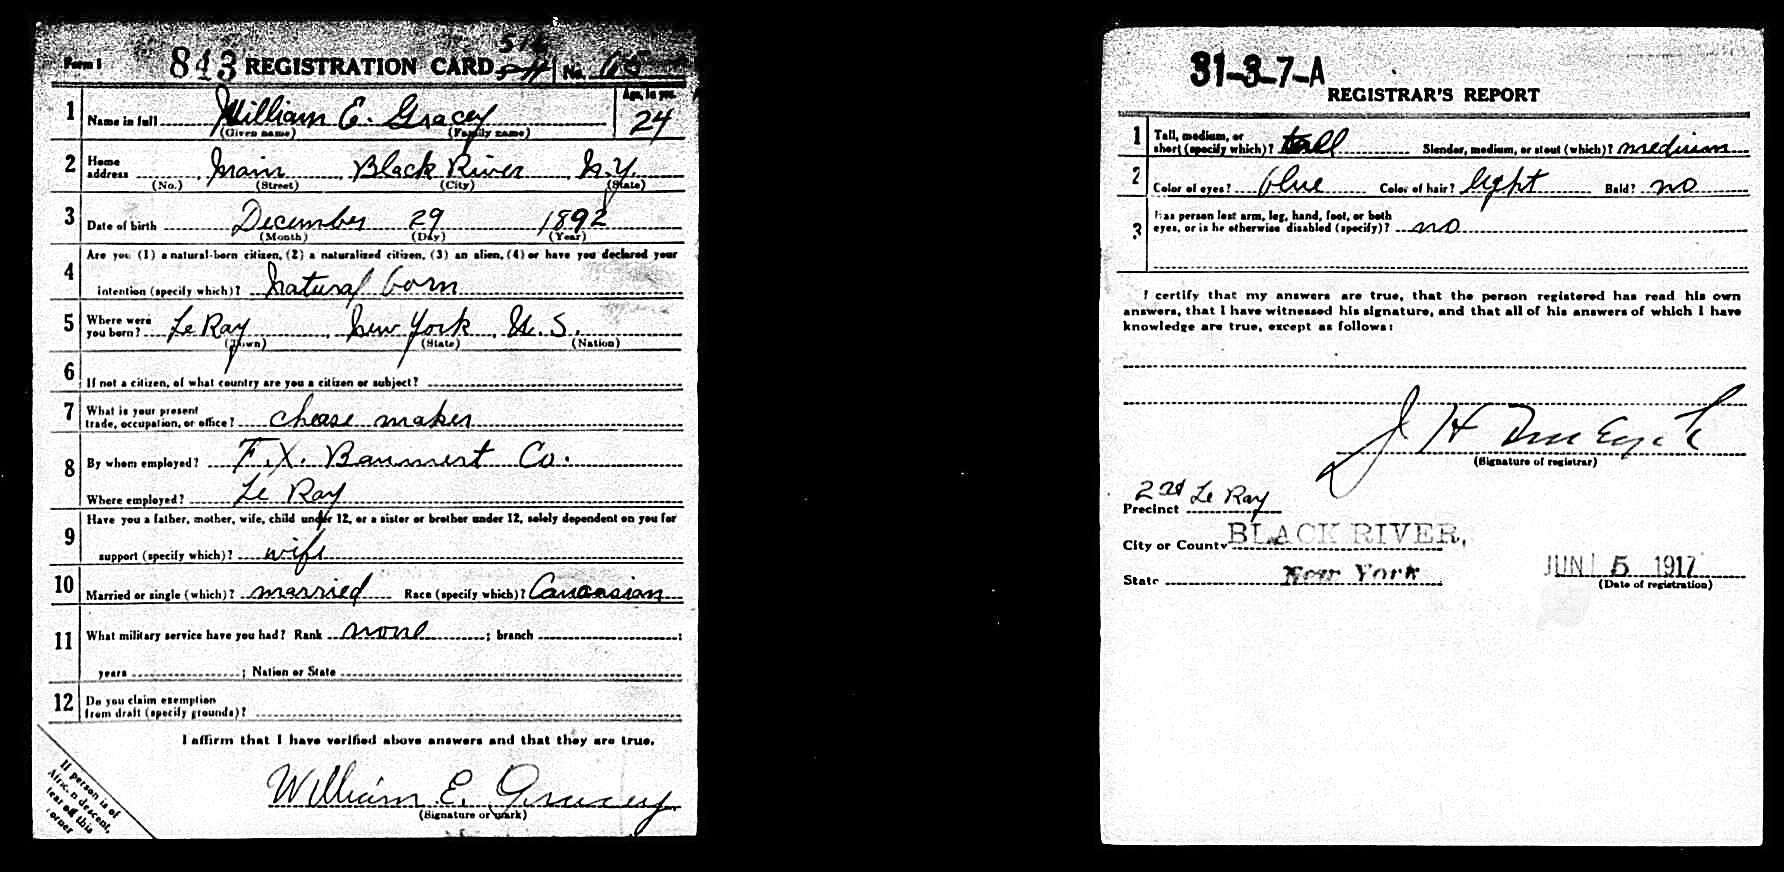 Form 1 843 REGISTRATION CARD 516 No. 65
1 Name in full William E. Gracey Age, in yrs. 24
(Given name) (Family name)
2 Home address Main Black River N.Y.
(No.) (Street) (City) (State)
3 Date of birth December 29 1892
(Month) (Day) (Year)
4 Are you (1) a natural-born citizen, (2) a naturalized citizen, (3) an alien, (4) or have you declared your
intention (specify which)? Natural born
5 Where were you born? Le Ray, New York, U.S.
(Town) (State) (Nation)
6 If not a citizen, of what country are you a citizen or subject?
7 What is your present
trade, occupation, or office? cheese maker
8 By whom employed? F.X. Baumert Co.
Where employed? Le Ray
9 Have you a father, mother, wife, child under 12, or a sister or brother under 12, solely dependent on you for
support (specify which)? wife
10 Married or single (which)? married Race (specify which)? Caucasian
11 What military service have you had? Rank none ; branch ;
years ; Nation or State
12 Do you claim exemption
from draft (specify grounds)?
I affirm that I have verified above answers and that they are true.
William E. Gracey
(Signature or mark)
If person is of
African descent,
tear off this
corner
31-3-7-A
REGISTRAR'S REPORT
1 Tall, medium, or
short (specify which)? tall Slender, medium, or stout (which)? medium
2 Color of eyes? blue Color of hair? light Bald? no
3 Has person lost arm, leg, hand, foot, or both
eyes, or is he otherwise disabled (specify)? no
I certify that my answers are true, that the person registered has read his own
answers, that I have witnessed his signature, and that all of his answers of which I have
knowledge are true, except as follows:
J H
(Signature of registrar)
Precinct 2nd Le Ray
City or County BLACK RIVER,
State New York
JUN 5 1917
(Date of registration)